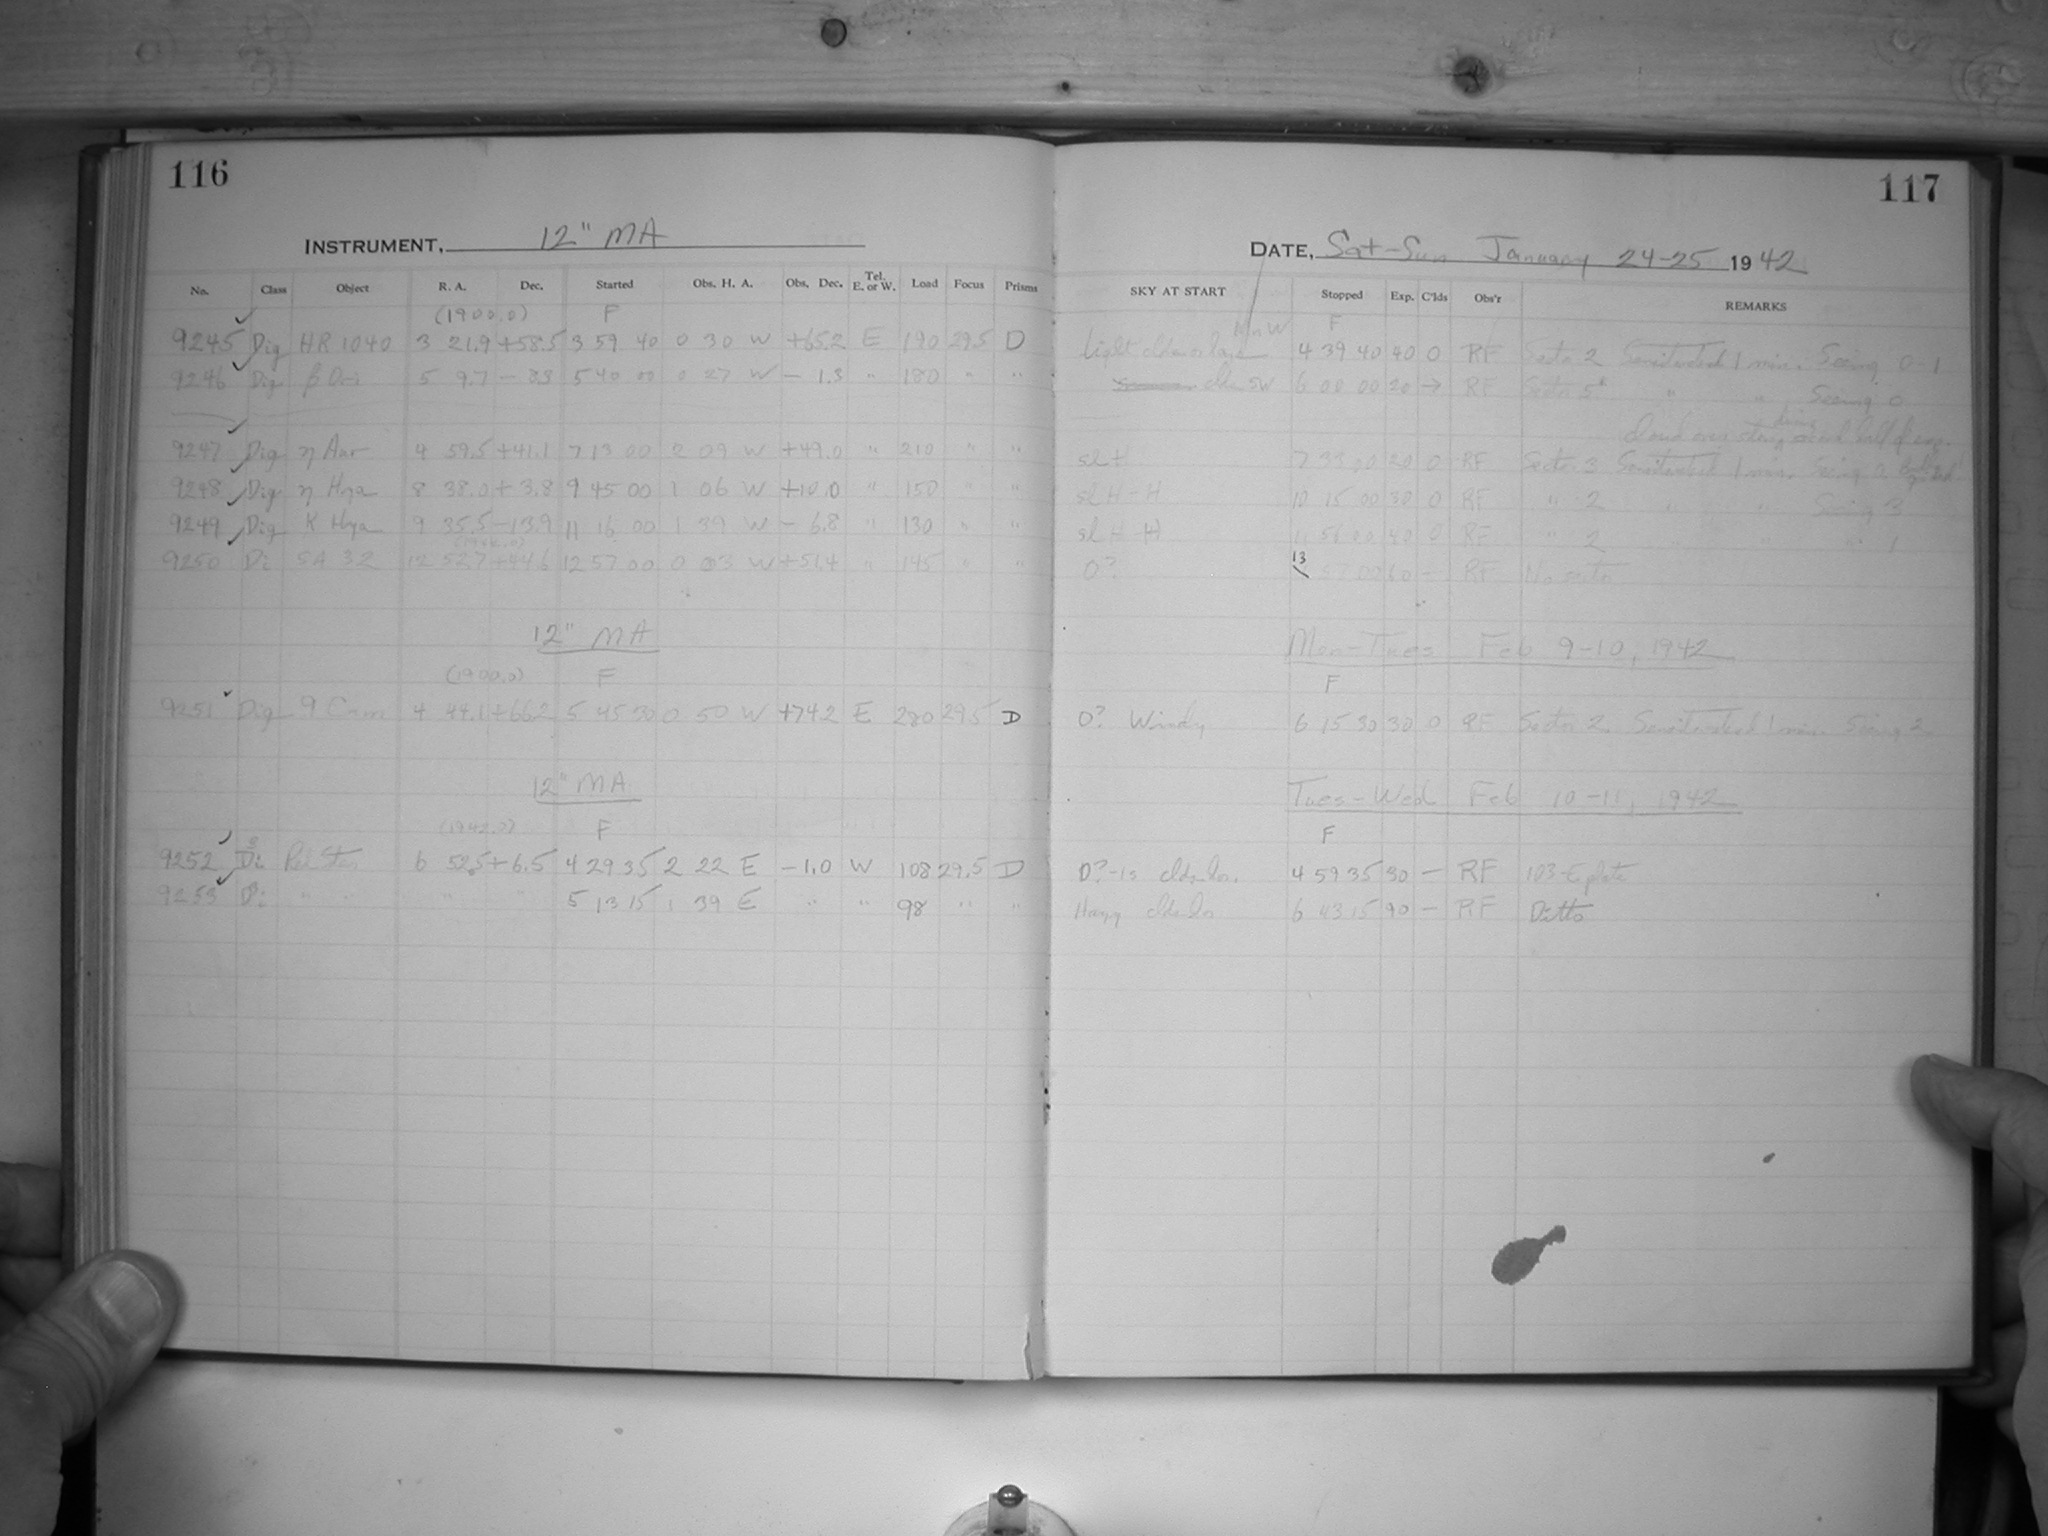 116
INSTRUMENT, 12" MA
No. Class Object R. A. Dec. Started Obs. H. A. Obs. Dec. Tel. E. or W. Load Focus Prisms
(1900.0) F
9245 Dig HR 1040 3 21.9 +58.5 3 59 40 0 30 W +65.2 E 190 29.5 D
9246 Dig β Ori 5 9.7 - 8.3 5 40 00 0 27 W - 1.3 " 180 " "
9247 Dig η Aur 4 59.5 +41.1 7 13 00 2 09 W +49.0 " 210 " "
9248 Dig η Hya 8 38.0 + 3.8 9 45 00 1 06 W +10.0 " 150 " "
9249 Dig K Hya 9 35.5 -13.9 11 16 00 1 39 W - 6.8 " 130 " "
9250 Di SA 32 12 52.7 +44.6 12 57 00 0 03 W +51.4 " 145 " "
12" MA
(1900.0) F
9251 Dig 9 Cam 4 44.1 +66.2 5 45 30 0 50 W +74.2 E 280 29.5 D
12" MA
(1942.0) F
9252 Di 6 52.5 + 6.5 4 29 35 2 22 E -1.0 W 108 29.5 D
9253 Di " " " " 5 13 15 1 39 E " " 98 " "
117
DATE, Sat-Sun January 24-25 1942
SKY AT START Stopped Exp. C'lds Obs'r REMARKS
F
Light 4 39 40 40 0 RF Sector 2 Sensitested 1 min. Seeing 0-1
SW 6 00 00 20 → RF Sector 5 " " Seeing 0
Cloud over during second half of exp.
sl H 7 33 00 20 0 RF Sector 3 Sensitested 1 min. Seeing
sl H-H 10 15 00 30 0 RF " 2 " " Seeing 3
sl H-H 11 56 00 40 0 RF " 2 " " " 1
0? 13 57 00 60 - RF No sector
Mon-Tues Feb 9-10, 1942
F
0? Windy 6 15 30 30 0 RF Sector 2. Sensitested 1 min. Seeing 2
Tues-Wed Feb 10-11, 1942
F
0?-1s 4 59 35 30 - RF 103-E plate
Hazy 6 43 15 90 - RF Ditto